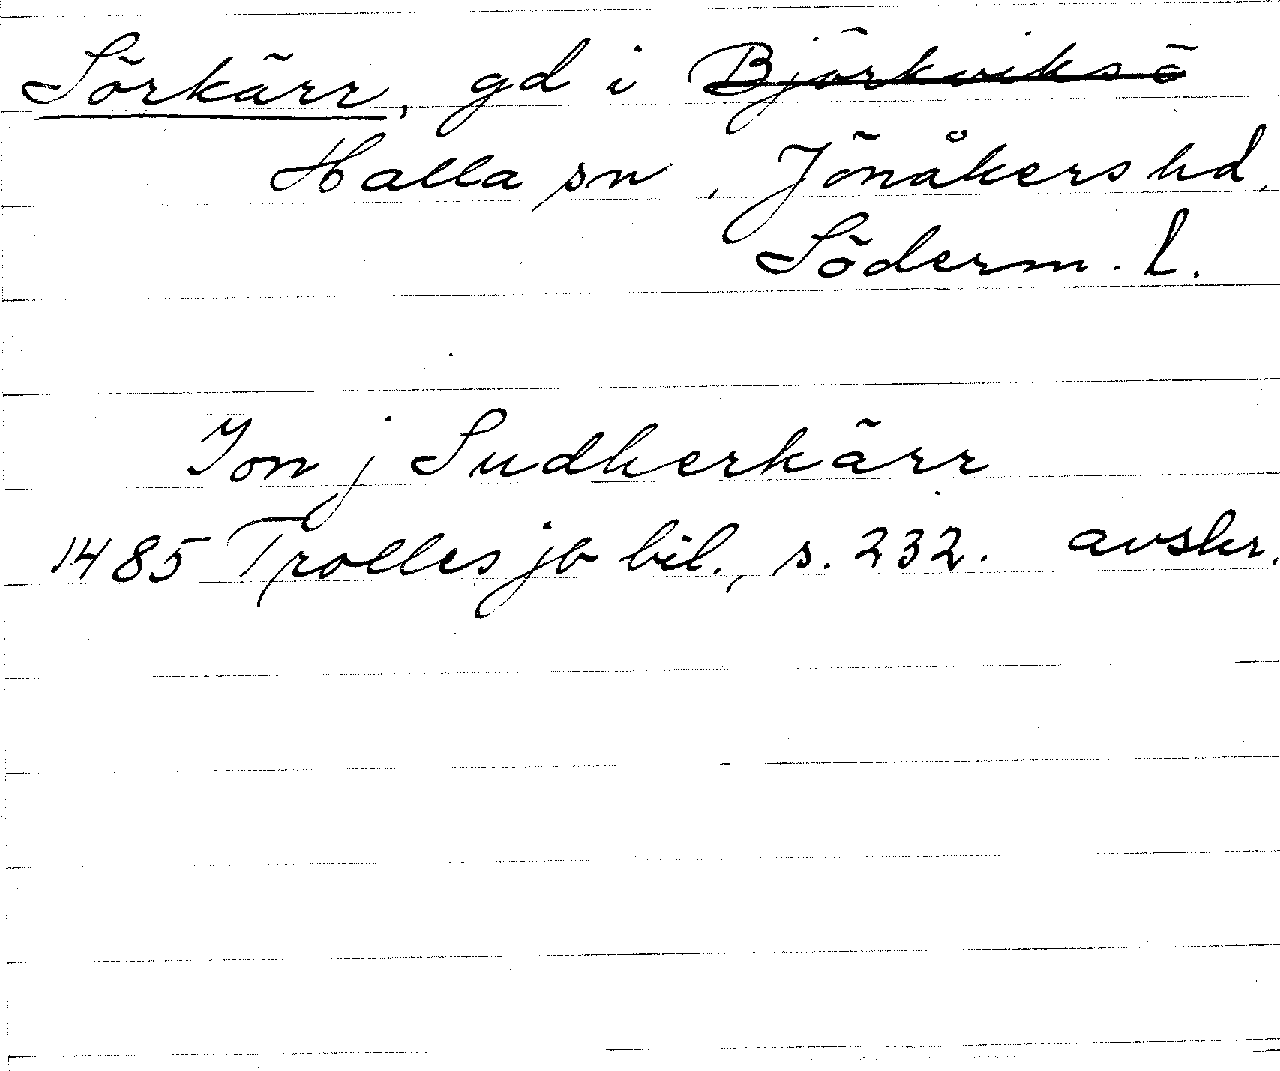 Sörkärr, gd i Björkviks ö
Halla sn, Jönåkers hd,
Söderm. l.
Jon j Sudherkärr
1485 Trolles jb bil., s. 232. avskr.